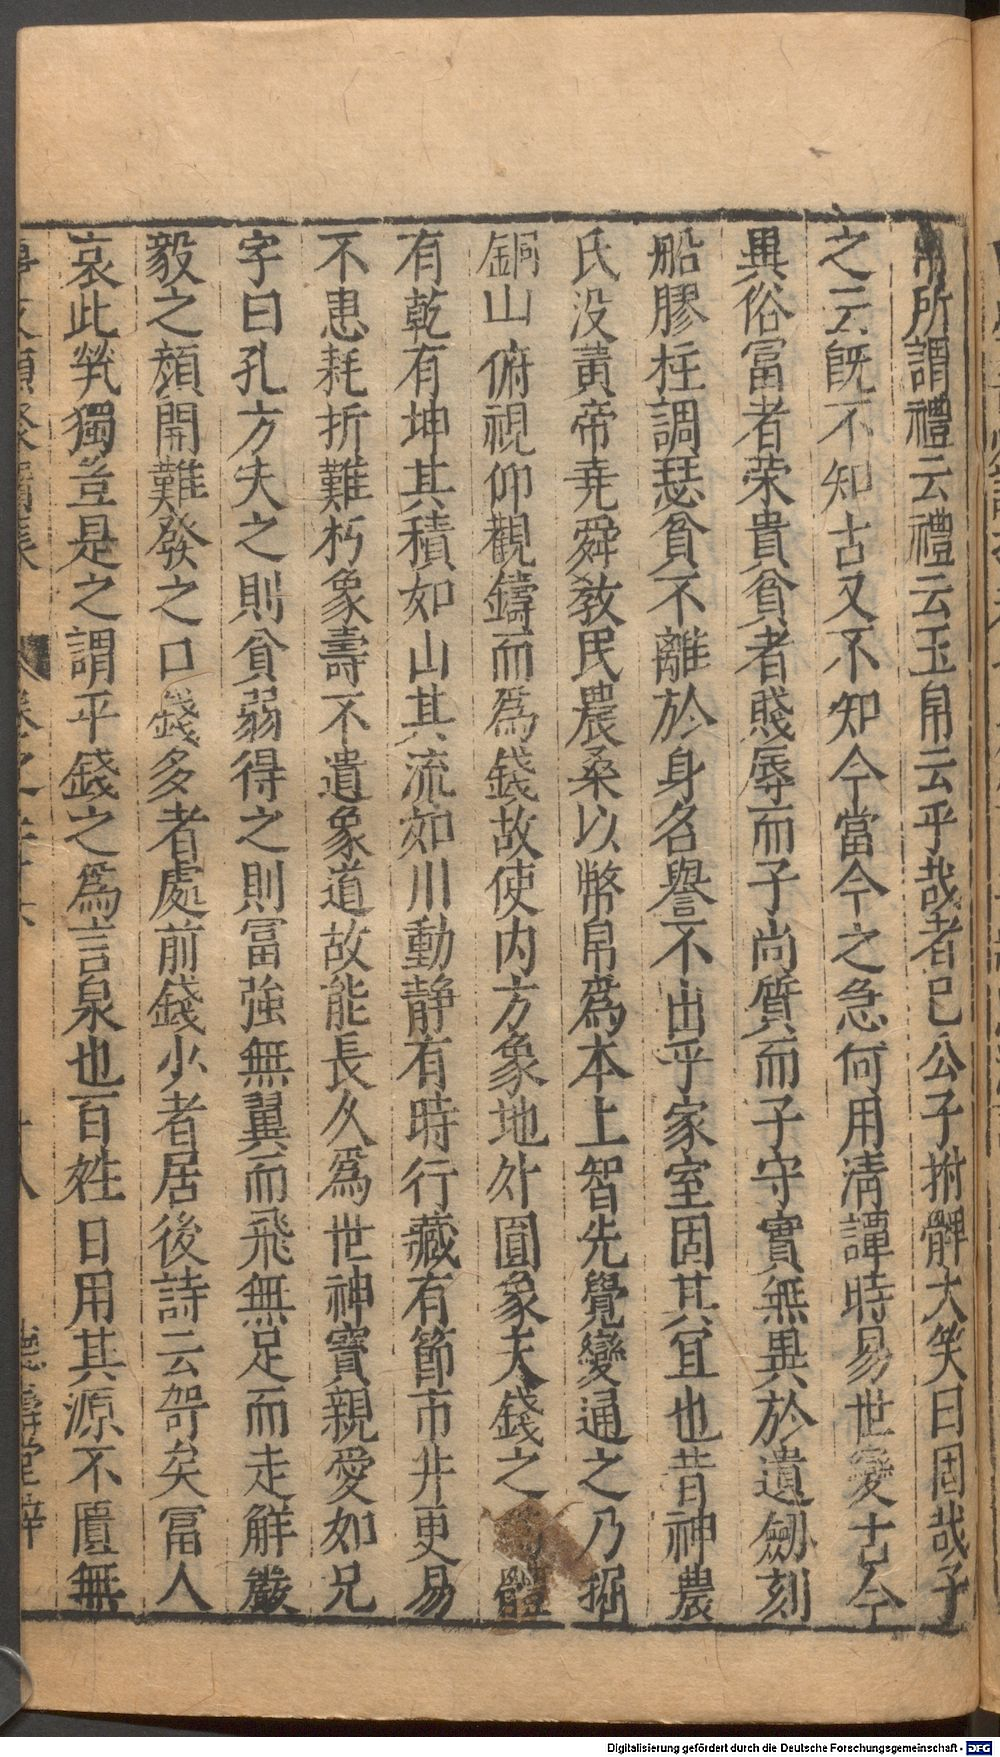 用所謂禮云禮云玉帛云乎哉者已公子拊髀大笑曰固哉子
之云既不知古又不知今當今之急何用清譚時易世變古今
異俗冨者荣貴貧者賤辱而子尚質而子守實無異於遺劒刻
船膠柱調瑟貧不離於身名譽不出乎家室固其宜也昔神農
氏没黄帝尭舜教民農桑以幣帛爲本上智先覺變通之乃掘
銅山俯視仰觀鑄而爲錢故使内方象地外圓象天錢之體
有乾有坤其積如山其流如川動静有時行藏有節市井更易
不患耗折難朽象壽不遺象道故能長久爲世神寶親愛如兄
字曰孔方失之則貧弱得之則冨強無翼而飛無足而走觧嚴
毅之顔開難發之口錢多者處前錢少者居後詩云哿矣冨人
哀此煢獨豈是之謂乎錢之爲言泉也百姓日用其源不匱無
德壽堂梓
Digitalisierung gefördert durch die Deutsche Forschungsgemeinschaft - DFG